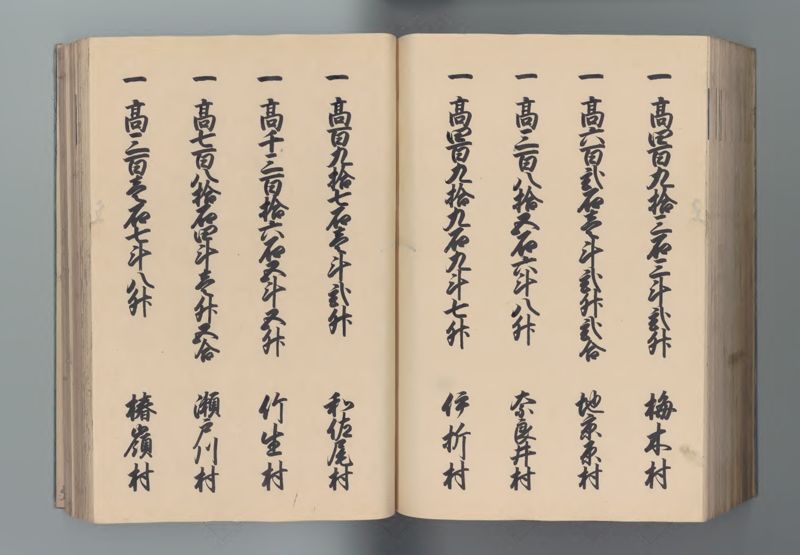 一 高四百九拾三石三斗弐升 梅木村
一 高六百弐石壱斗弐升弐合 地京原村
一 高三百八拾五石六斗八升 奈良井村
一 高四百九拾九石九斗七升 伊折村
一 高百九拾七石壱斗弐升 和佐尾村
一 高千三百拾六石五斗五升 竹生村
一 高七百八拾石四斗壱升五合 瀬戸川村
一 高三百壱石七斗八升 椿嶺村